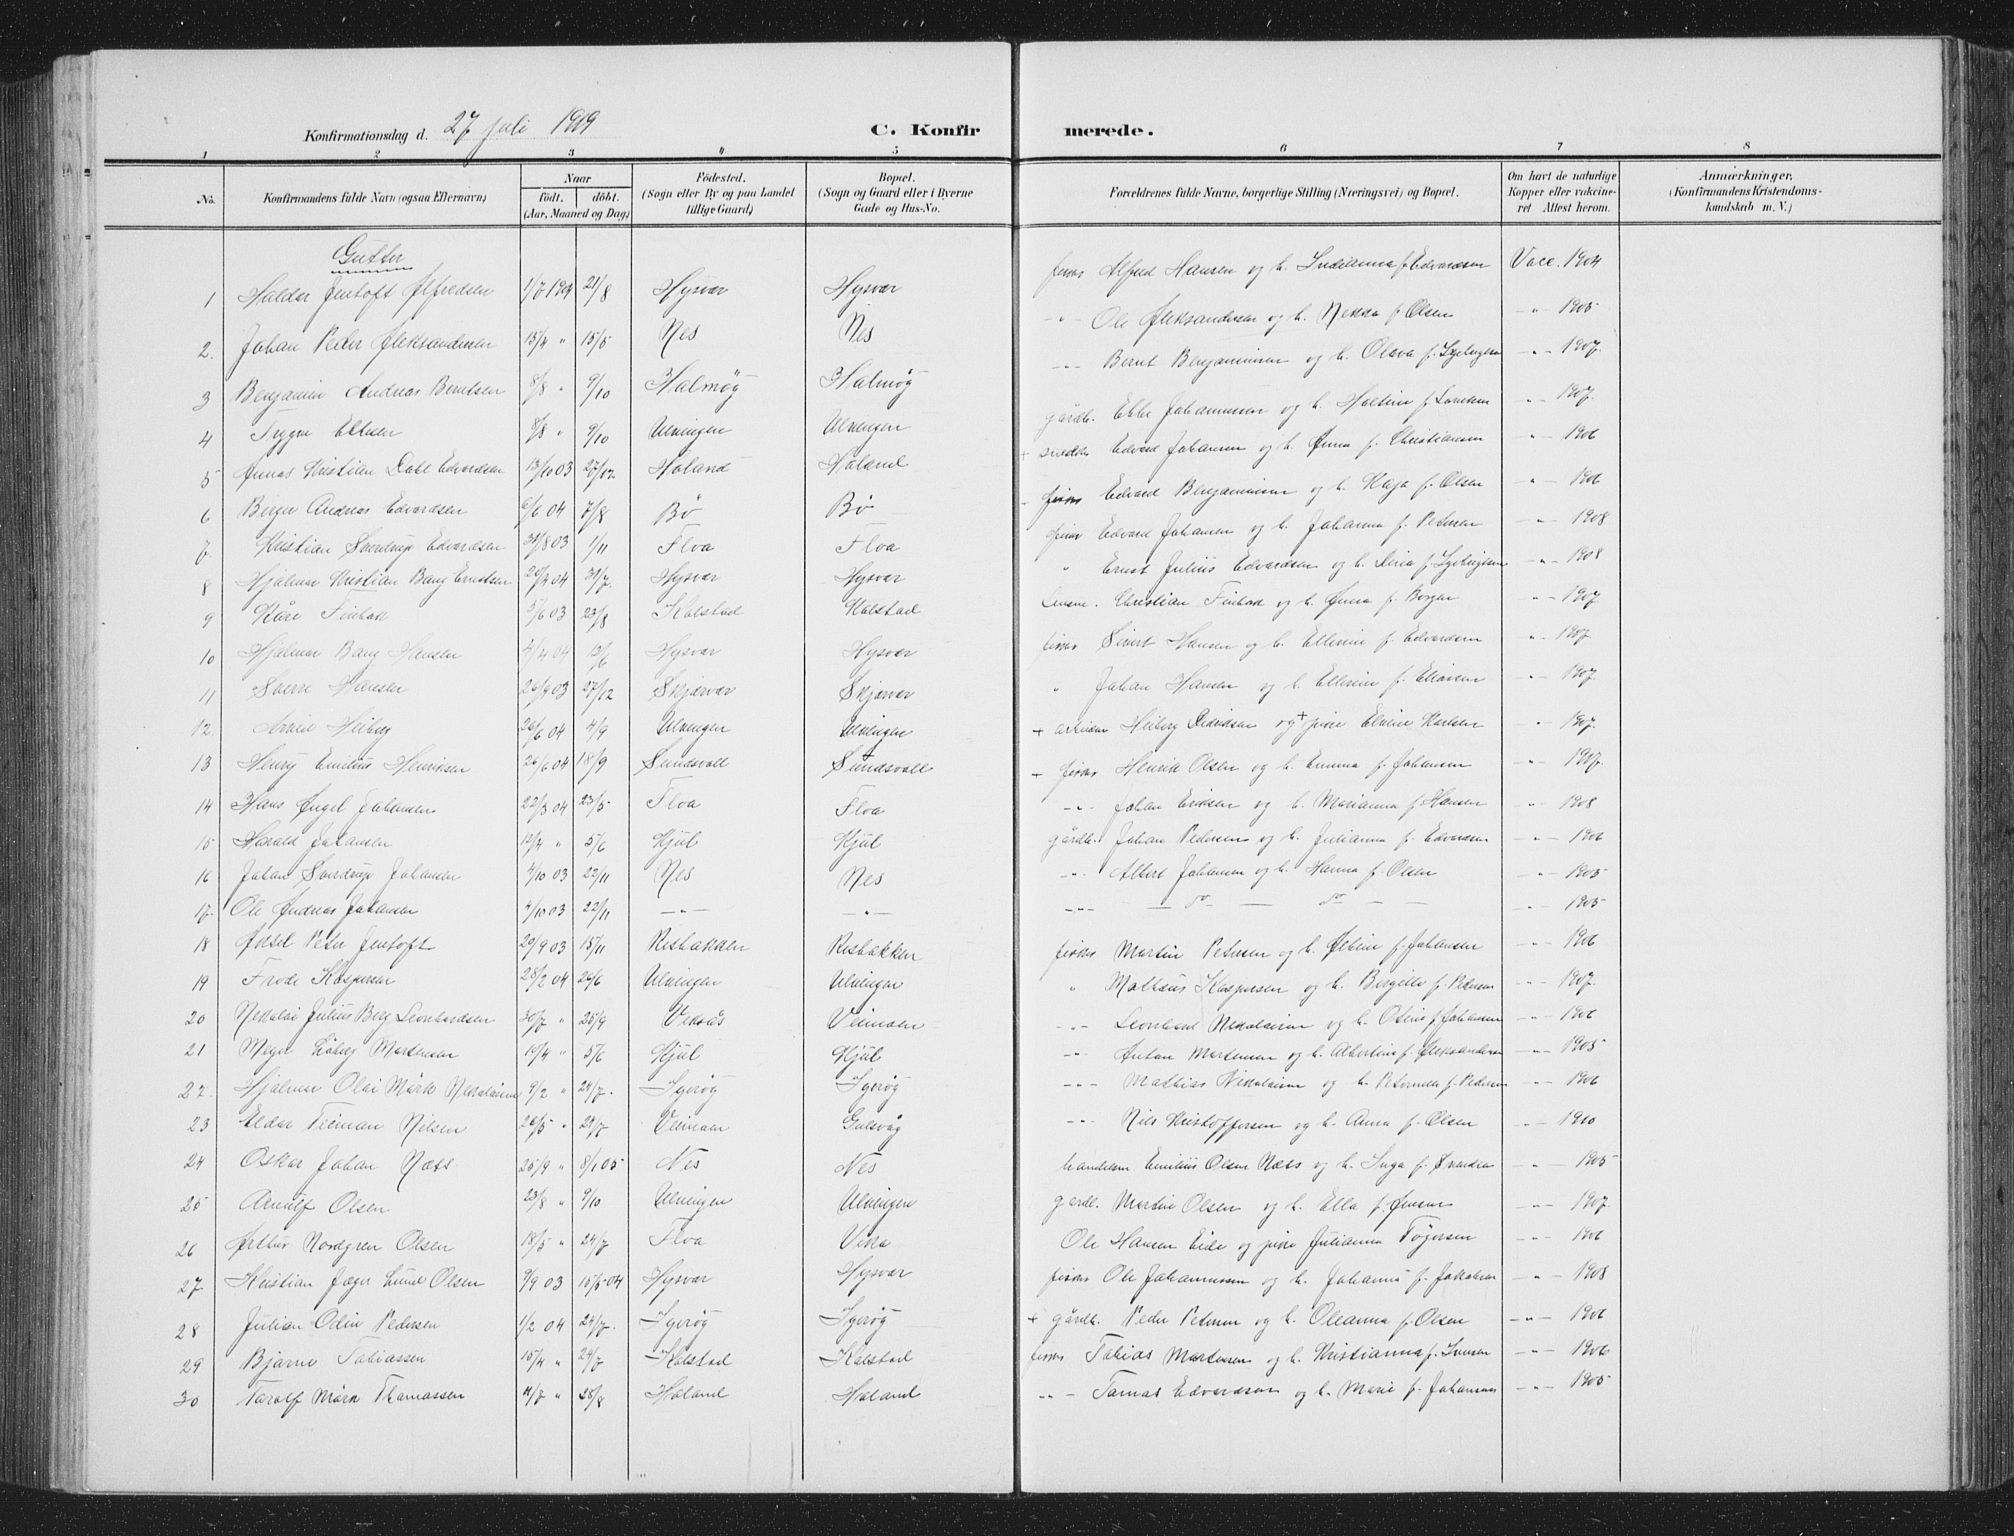 Konfirmationsdag d. 27 juli 1919
C. Konfirmerede.
1 2 3 4 5 6 7 8
No. Konfirmandens fulde Navn (ogsaa Efternavn) Naar födt. döbt. (Aar, Maaned og Dag) Födested. (Sogn eller By og paa Landet tillige Gaard) Bopæl. (Sogn og Gaard eller i Byerne Gade og Hus-No. Forældrenes fulde Navne, borgerlige Stilling (Næringsvei) og Bopæl. Om havt de naturlige Kopper eller vaccineret Attest herom. Anmærkninger. (Konfirmandens Kristendomskundskab m. V.)
Gutter
1 Haldor Jentoft Alfredsen 1/7 1904 21/8 Hysvær Hysvær fisker Alfred Hansen og h. f. Edvardsen Vacc. 1904
2. Johan Peder Aleksandersen 13/4 " 15/5 Nes Nes -"- Ole Aleksandersen og h. Nekka f. Olsen -"- 1905
3 Benjamin Andreas Berntsen 8/8 " 9/10 Halmøy Halmøy -"- Bernt Benjaminsen og h. Olava f. -"- 1907.
4 Trygve Ebbesen 8/8 " 9/10 Ulvingen Ulvingen gårdb. Ebbe Johannessen og h. f. -"- 1907.
5 Kristian Dahl Edvardsen 13/10 03 27/12 Høland Høland + Edvard Johansen og h. Anna f. Christiansen " 1906
6 Birger Andreas Edvardsen 6/6 04 7/8 Bø Bø fisker Edvard Benjaminsen og h. Kaja f. Olsen -"- 1906
7 Kristian Sverdrup Edvardsen 31/8 03 1/11 Floa Floa Edvard Johansen og h. Johanna f. Petersen -"- 1908
8 Hjalmar Kristian Bang Ernstsen 20/2 04 31/7. Hysvær Hysvær " Ernst Julius Edvardsen og h. f. -"- 1908
9 Kåre Finbak 5/6 03 23/8 Kolstad Kolstad Christian Finbak og h. Anna f. Borgen -"- 1907
10 Hjalmar Bang Hansen 4/4 04 13/6 Hysvær Hysvær fisker Sivert Hansen og h. Ellerine f. Edvardsen " 1907.
11 Sverre Hansen 26/9 03 27/12 Skjærvær Skjærvær " Johan Hansen og h. Ellerine f. " 1907.
12. Heiberg 26/6 04 4/9 Ulvingen Ulvingen + arbeider Heiberg Didriksen og + pike Karlsen " 1907.
13 Henry Emilius Henriksen 26/6 04 18/9 Sundsvoll Sundsvoll + fisker Henrik Olsen og h. Emma f. Johansen -"- 1907.
14 Hans Angel Johansen 22/3 04 23/5 Floa Floa -"- Johan Eriksen og h. Marianna f. Hansen -"- 1908
15 Harald Johansen 12/4 " 5/6 Kjul Kjul gårdb. Johan Pedersen og h. Julianna f. Edvardsen -"- 1906
16 Johan Sverdrup Johansen 4/10 03 22/11 Nes Nes -"- Albert Johansen og h. Hanna f. Olsen -"- 1905
17 Ole Andreas Johansen 4/10 03 22/11 -"- -"- -"- — do — do — — -"- 1905
18 Aksel Peter Jentoft 20/9 03 15/11 Risbakken Risbakken fisker Martin Petersen og h. Albine f. Johansen -"- 1906
19 Frode Kaspersen 28/2 04 29/6 Ulvingen Ulvingen " Mathæus Kaspersen og h. Bergitte f. Pedersen -"- 1907.
20 Nikolai Julius Berg Leonhardsen 30/7 " 25/9 Vikaas Veimoen -"- Leonhard Nikolaisen og h. Osine f. Johansen -"- 1906
21 Løberg Mortensen 10/4 " 5/6 Kjul Kjul -"- Anton Mortensen og h. Albertine f. Aleksandersen -"- 1905
22. Hjalmar Olai Mørk Nikolaisen 9/2 " 24/7. Igerøy Igerøy -"- Mathias Nikolaisen og h. Petornella f. Pedersen -"- 1906
23 Eldar Nilsen 26/5 " 24/7 Veimoen Gulsvåg -"- Nils Kristoffersen og h. Anna f. Olsen -"- 1910
24 Oskar Johan Næss 25/9 " 8/1 05 Nes Nes handelsm. Emilius Olsen Næss og h. Inga f. -"- 1905
25 Arnulf Olsen 23/8 " 9/10 Ulvingen Ulvingen gårdb. Martin Olsen og h. Ella f. Jensen -"- 1907.
26 Arthur Nordgren Olsen 18/5 " 24/7 Floa Vika Ole Hansen Eide og pike Julianna Tøgersen -"- 1906
27 Kristian Jæger Lund Olsen 9/9 03 15/5 04 Hysvær Hysvær fisker Ole Johannessen og h. Johanna f. Jakobsen -"- 1908
28 Julian Odin Pedersen 1/2 04 24/7. Igerøy Igerøy + gårdb. Peder Petersen og h. Oleanna f. Olsen -"- 1906
29 Bjarne Tobiassen 15/4 " 24/7 Kolstad Kolstad fisker Tobias Mortensen og h. Kristianna f. Ivarsen -"- 1906
30 Mørk Thomassen 4/7 " 28/8 Høland Høland -"- Tomas Edvardsen og h. Marie f. Johansen -"- 1905